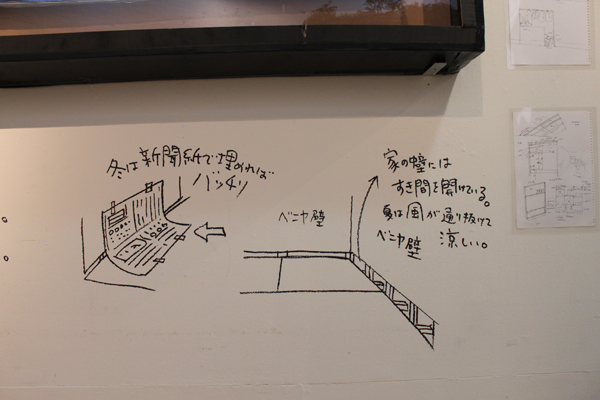 冬は新聞紙で埋めれば
バッチリ
ベニヤ壁
家の壁には
すき間を開けている。
夏は風が通り抜けて
ベニヤ壁 涼しい。